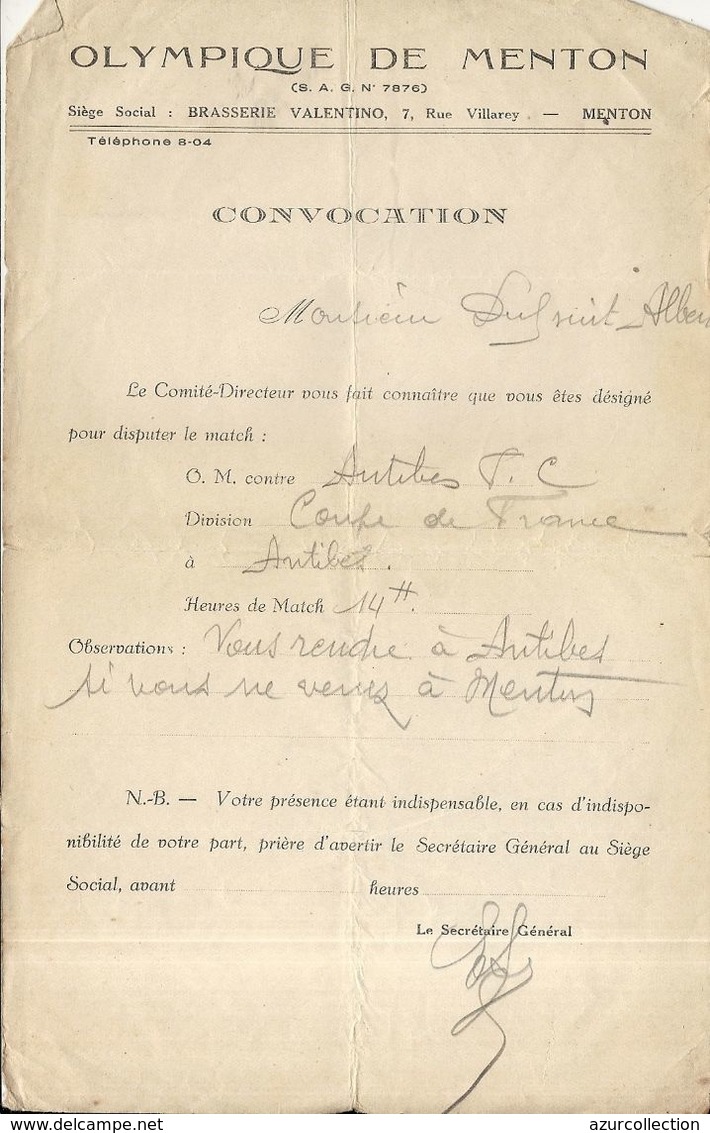 OLYMPIQUE DE MENTON
(S. A. G. N° 7876)
Siège Social : BRASSERIE VALENTINO, 7, Rue Villarey . — MENTON
Téléphone 8-04
CONVOCATION
Monsieur
Le Comité-Directeur vous fait connaître que vous êtes désigné
pour disputer le match :
O. M. contre Antibes F. C
Division Coupe de France
à Antibes.
Heures de Match 14 H.
Observations : Vous rendre à Antibes
si vous ne venez à Menton
N.-B. — Votre présence étant indispensable, en cas d'indispo-
nibilité de votre part, prière d'avertir le Secrétaire Général au Siège
Social, avant heures
Le Secrétaire Général
www.delcampe.net
azurcollection